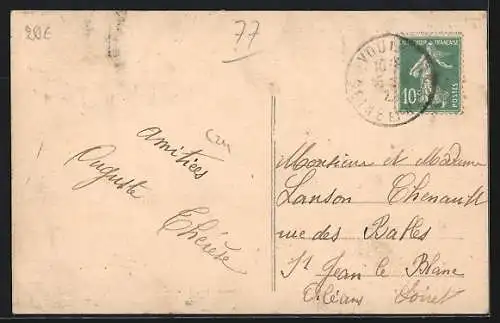 20€
77
VOU
10
RÉPUBLIQUE FRANÇAISE
10c
POSTES
amitiées
Auguste
Thérèse
Monsieur et Madame
Lanson Chenault
rue des Balles
St Jean le Blanc
Orléans Loiret